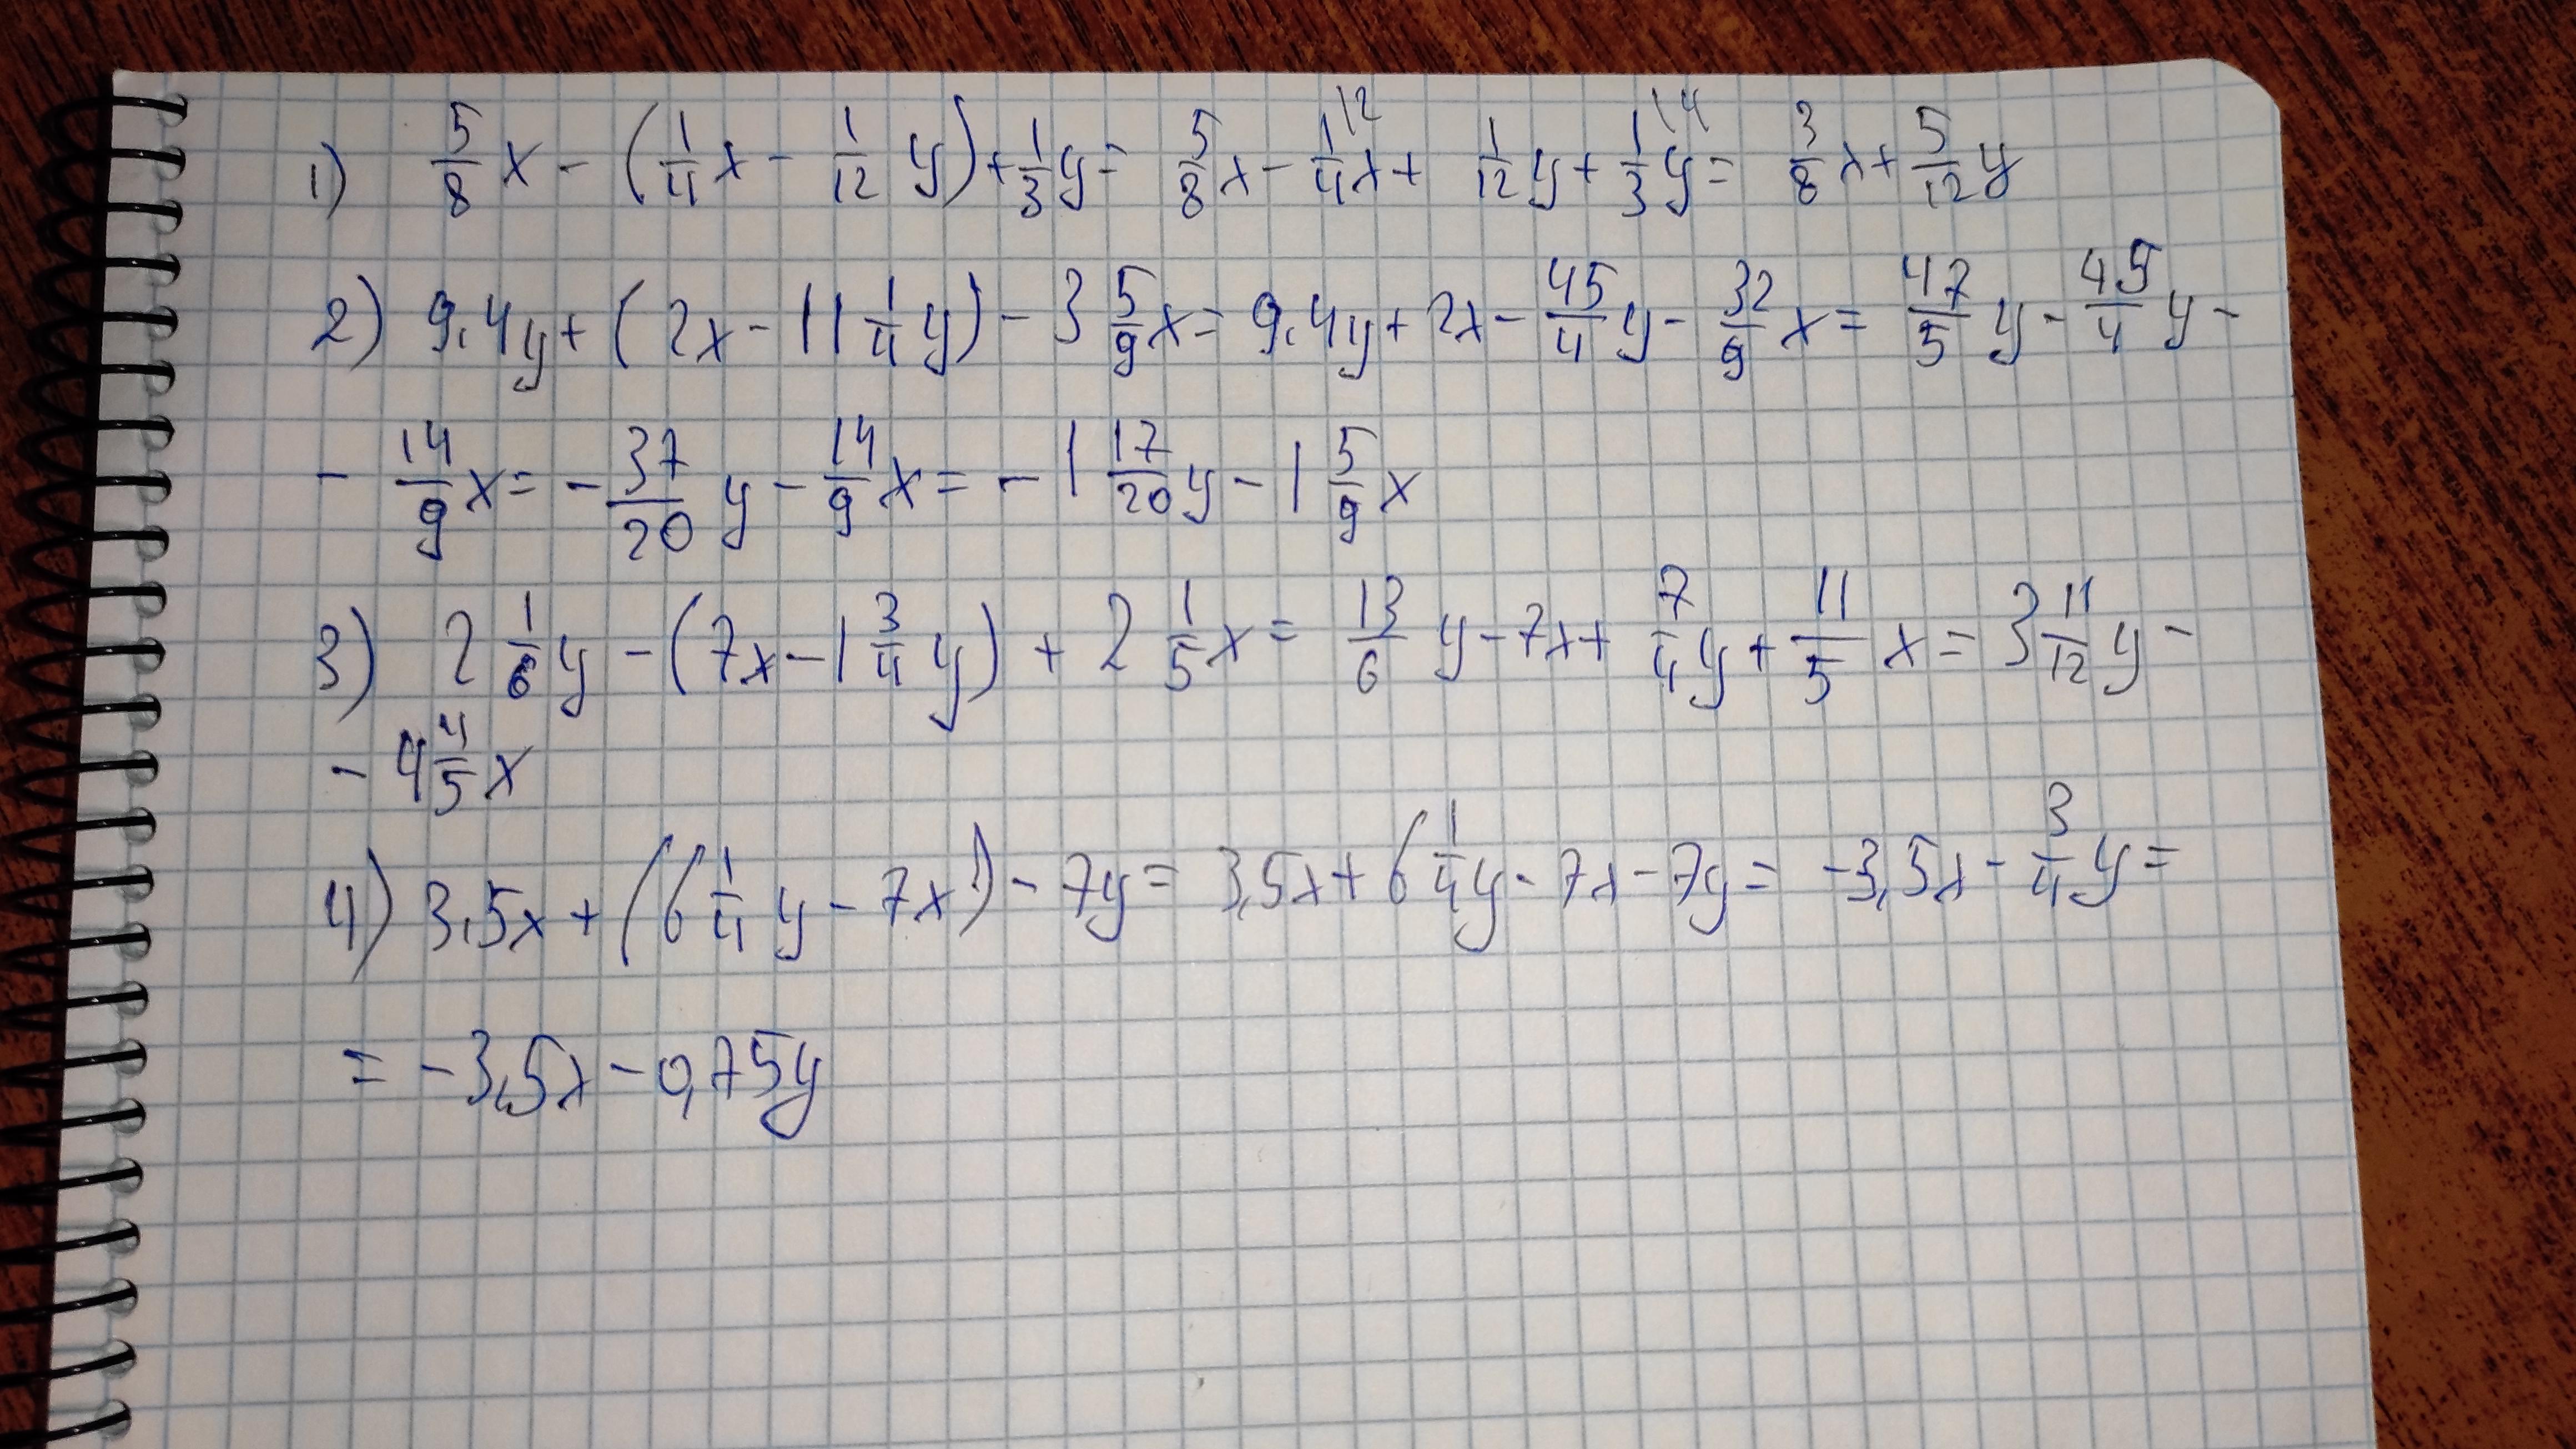 1) 5/8 x - (1/4 x - 1/12 y) + 1/3 y = 5/8 x - 1/4 |2 x + 1/12 y + 1/3 |4 y = 3/8 x + 5/12 y
2) 9,4y + (2x - 11 1/4 y) - 3 5/9 x = 9,4y + 2x - 45/4 y - 32/9 x = 47/5 y - 45/4 y -
- 14/9 x = - 37/20 y - 14/9 x = - 1 17/20 y - 1 5/9 x
3) 2 1/6 y - (7x - 1 3/4 y) + 2 1/5 x = 13/6 y - 7x + 7/4 y + 11/5 x = 3 11/12 y -
- 4 4/5 x
4) 3,5x + (6 1/4 y - 7x) - 7y = 3,5x + 6 1/4 y - 7x - 7y = -3,5x - 3/4 y =
= -3,5x - 0,75y